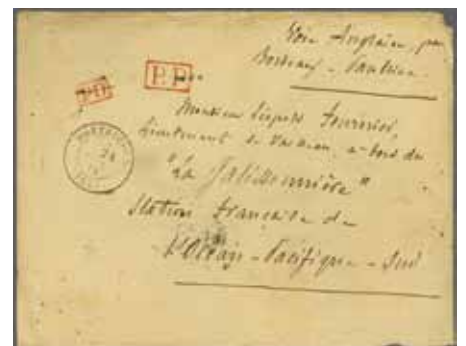 Voie Anglaise, par
Bordeaux - 
P.D. P.P.
Monsieur Fournier,
Lieutenant de Vaisseau, à bord du
"La Galissonnière"
Station Française de
l'Océan - Pacifique - Sud